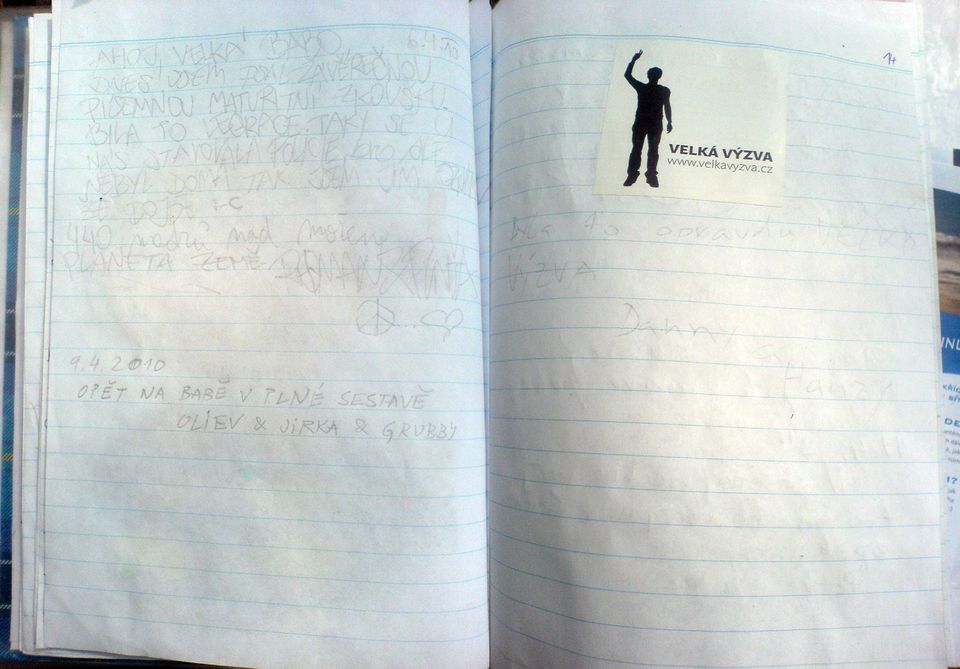 AHOJ, VELKÁ BABO, 6.4.10
DNES JSEM DAL ZÁVĚREČNOU
PÍSEMNOU MATURITNÍ ZKOUŠKU.
BILA TO TAKY SE U
NÁS STAVOVALA POLICIE,
NEBYL DOMA TAK JSEM JIM
ŽE DOJDE :-C
440 metrů nad mořem
PLANETA ZEMĚ
9.4.2010
OPĚT NA BABĚ V PLNÉ SESTAVĚ
OLIEV & JIRKA & GRUBBY
14
VELKÁ VÝZVA
www.velkavyzva.cz
Bla to opravdu VELKÁ
VÍZVA
Danny
Hanzy